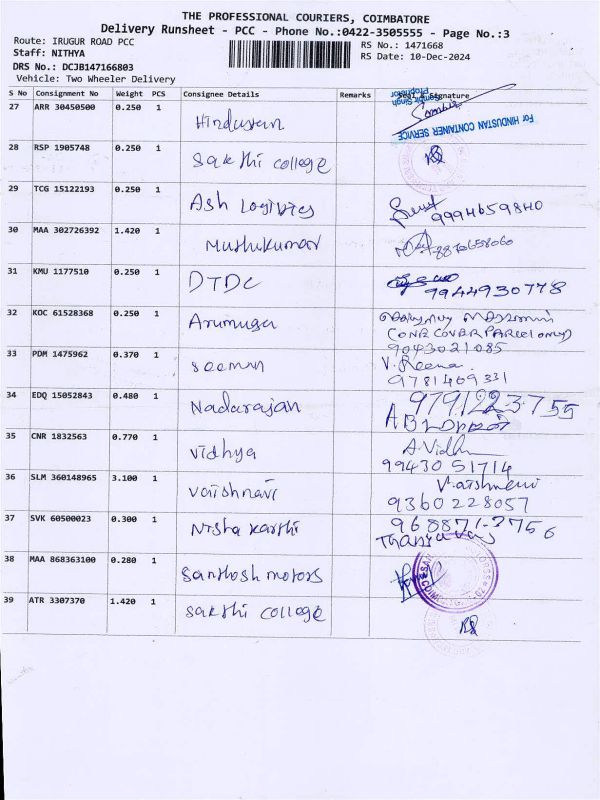 THE PROFESSIONAL COURIERS, COIMBATORE
Delivery Runsheet - PCC - Phone No.:0422-3505555 - Page No.:3
Route: IRUGUR ROAD PCC
RS No.: 1471668
Staff: NITHYA
RS Date: 10-Dec-2024
DRS No.: DCJB147166803
Vehicle: Two Wheeler Delivery
S No Consignment No Weight PCS Consignee Details Remarks Seal & Signature
27 ARR 30450500 0.250 1 Hindustan
For HINDUSTAN CONTAINER SERVICE
28 RSP 1905748 0.250 1 Sakthi college
29 TCG 15122193 0.250 1 Ash Logistics 9994659840
30 MAA 302726392 1.420 1 Muthukumar 8870658060
31 KMU 1177510 0.250 1 DTDC 9944930778
32 KOC 61528368 0.250 1 Arumuga
(ONE COVER PARCEL only)
9043021085
33 PDM 1475962 0.370 1 seeman V. Reena
9781409331
34 EDQ 15052843 0.480 1 Nadarajan 9791223755
35 CNR 1832563 0.770 1 vidhya A. Vidhya
99430 51714
36 SLM 360148965 3.100 1 vaishnavi Vaishnavi
9360228057
37 SVK 60500023 0.300 1 Nisha karthi 968871-3756
38 MAA 868363100 0.280 1 Santhosh motors
39 ATR 3307370 1.420 1 Sakthi college